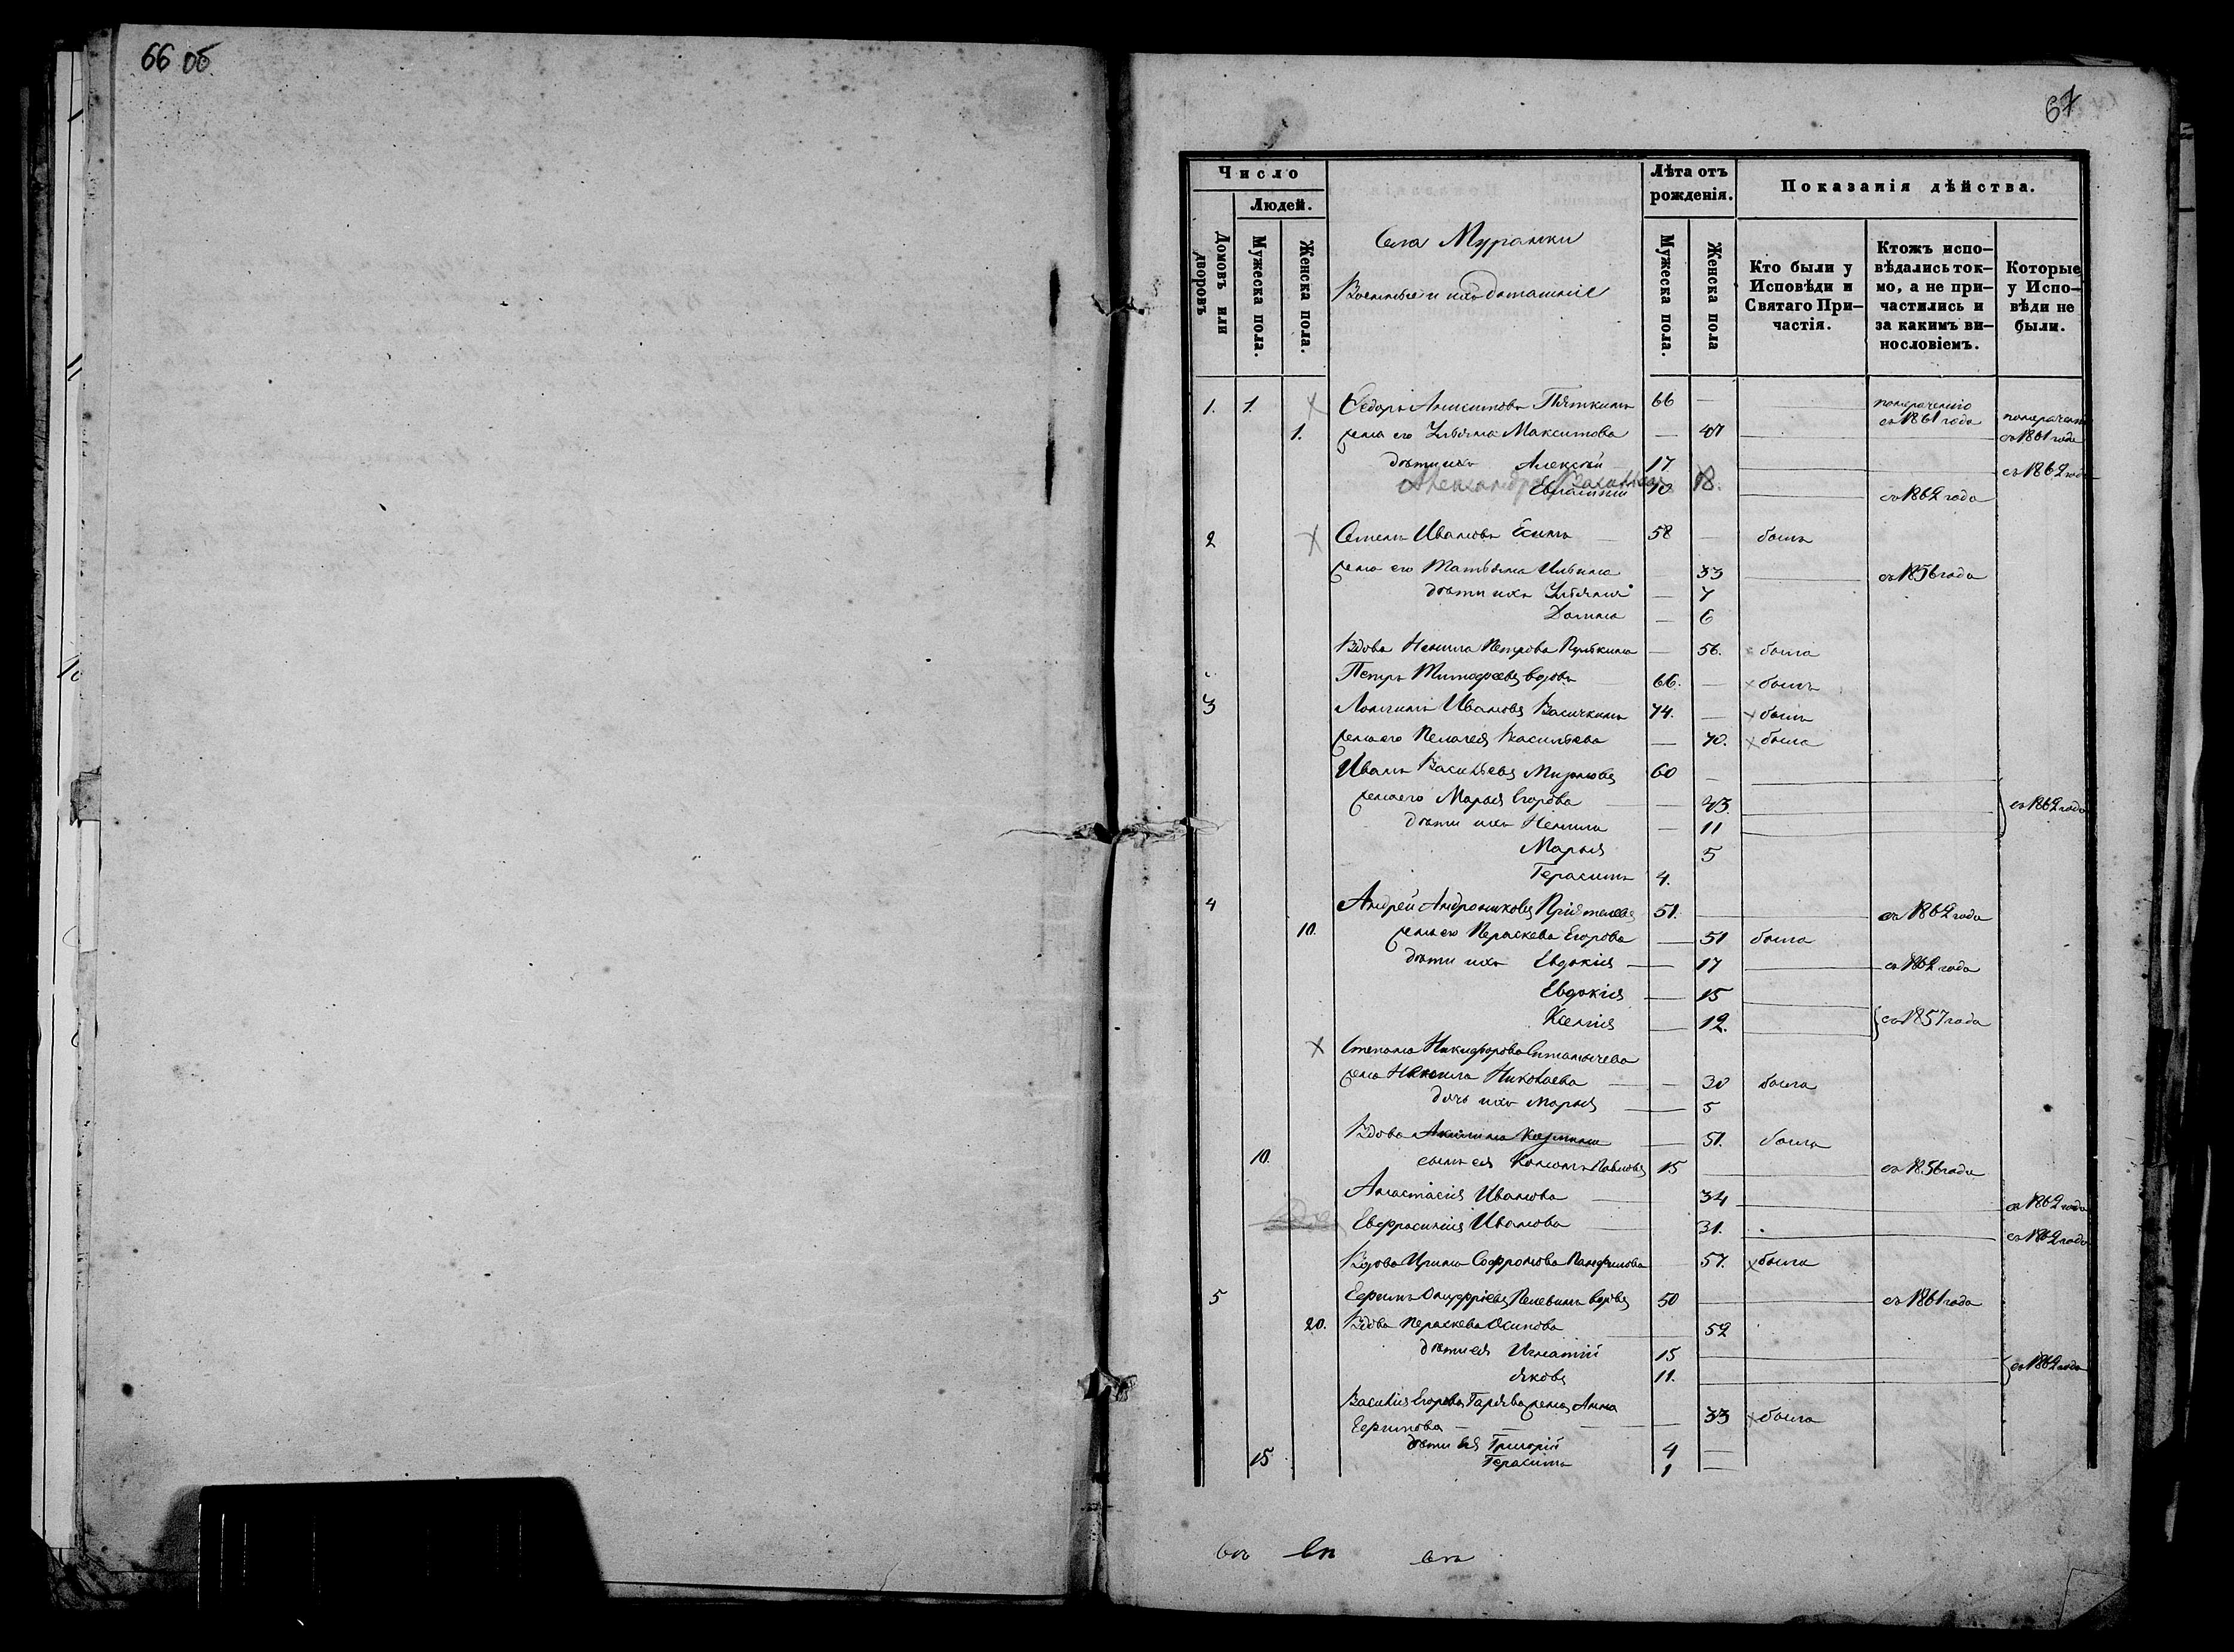 66 об.
67
Число
Лѣта отъ рожденія.
Показанія дѣйства.
Людей.
Домовъ или дворовъ
Мужеска пола.
Женска пола.
Села Муранки
Военные и ихъ домашніе
Мужеска пола.
Женска пола
Кто были у Исповѣди и Святаго Причастія.
Ктожъ исповѣдались токмо, а не причастились и за какимъ винословіемъ.
Которые у Исповѣди не были.
1. 1. Ѳедоръ Пяткинъ 66 — съ 1861 года
1. жена его Ульяна Максимова — 47 съ 1861 года
дѣти ихъ Алексѣй 17 съ 1862 года
Александра 18. съ 1862 года
2 Семенъ Ивановъ Есинъ 58 — былъ
жена его Татьяна Ильина 33 съ 1856 года
дѣти ихъ Ульянія — 7
Домна — 6
Вдова Ненила Петрова — 56. была
Петръ Тимофеевъ вдовъ 66. — былъ
3 Лонгинъ Ивановъ Васичкинъ 74. — былъ
жена его Пелагея Васильева — 70. была
Иванъ Васильевъ 60 —
жена его Марья Егорова — 43. съ 1862 года
дѣти ихъ Ненила — 11
Марья 5
Герасимъ 4.
4 Андрей Андрониковъ Пріятелевъ 51. съ 1862 года
10. жена его Пераскева Егорова — 51 была
дѣти ихъ Евдокія — 17 съ 1862 года
Евдокія — 15
Ксенія — 12. съ 1857 года
Степана Никифорова
жена Ненила Николаева — 30 была
дочь ихъ Марья — 5
Вдова Акилина — 51. была
10. сынъ ея Павловъ 15 съ 1856 года
Анастасія Иванова 34 съ 1862 года
Евфросинія Иванова 31. съ 1862 года
Вдова Ирина Софронова Панфилова 57. была
5 Ефимъ Онуфріевъ вдовъ 50 съ 1861 года
20. Вдова Пераскева Осипова 52
дѣти ея Игнатій 15 съ 1862 года
Яковъ 11.
Василія Егорова жена Анна
Ефимова — 33 была
дѣти ея Григорій 4 —
15 Герасимъ 1 —